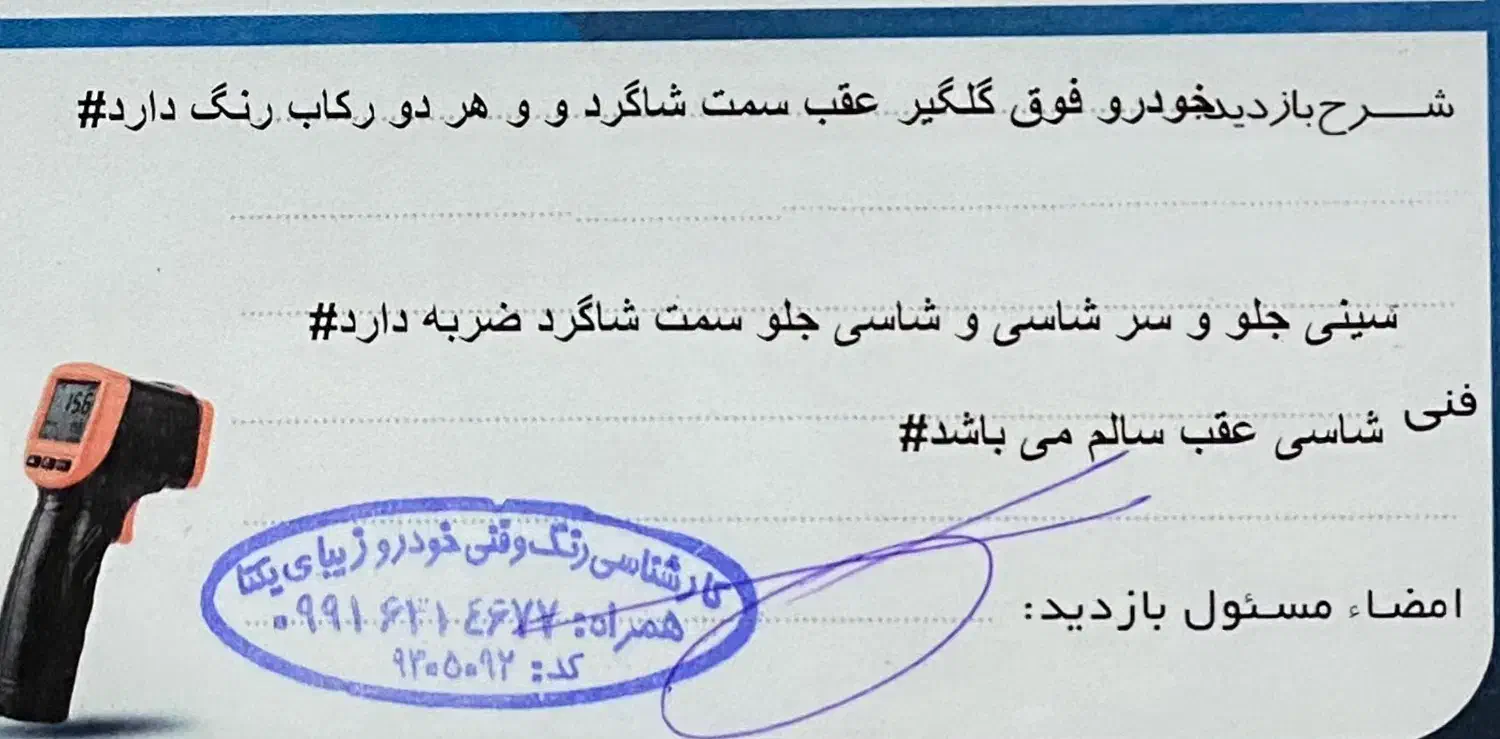 شـــرح بازدید خودرو فوق گلگیر عقب سمت شاگرد و و هر دو رکاب رنگ دارد#
سینی جلو و سر شاسی و شاسی جلو سمت شاگرد ضربه دارد#
فنی شاسی عقب سالم می باشد#
کارشناسی رنگ و فنی خودرو زیبای یکتا
همراه: ۰۹۹۱۶۳۱۴۶۷۷
کد: ۹۳۰۵۰۹۲
امضاء مسئول بازدید:
156